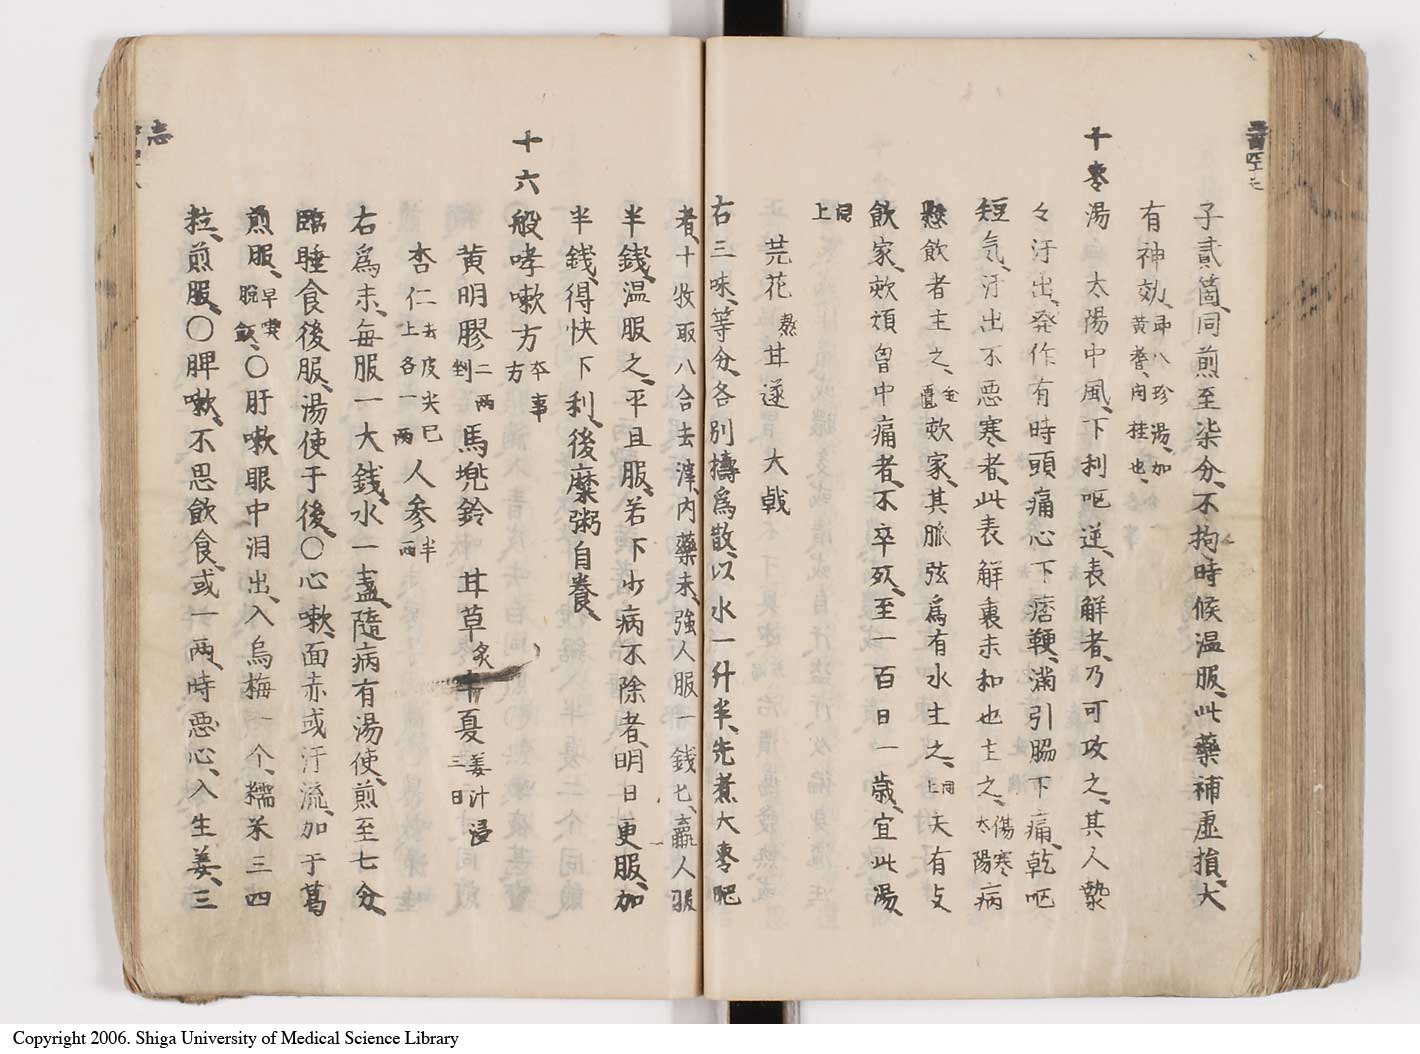 子貳箇同煎至柒分不拘時候温服此藥補虛損大
有神効 即八珍湯加黄耆肉桂也
十棗湯 太陽中風下利呕逆表解者乃可攻之其人漐
々汗出発作有時頭痛心下痞鞕滿引脇下痛乾呕
短気汗出不悪寒者此表解裏未和也主之 傷寒太陽病
懸飲者主之 欬家其脈弦爲有水主之 同上 夫有支
飲家欬煩胷中痛者不卒死至一百日一歳宜此湯
同上
芫花 熬 甘遂 大戟
右三味等分各別擣爲散以水一升半先煮大棗肥
者十枚取八合去滓内藥末強人服一錢匕羸人服
半錢温服之平旦服若下少病不除者明日更服加
半錢得快下利後糜粥自養
十六般哮嗽方
黄明膠 二兩 馬兠鈴 甘草 炙 半夏 姜汁浸三日
杏仁 去皮尖已上各一兩 人参 半兩
右爲末毎服一大錢水一盞隨病有湯使煎至七分
臨睡食後服湯使于後〇心嗽面赤或汗流加于葛
煎服 〇肝嗽眼中泪出入烏梅一个糯米三四
粒煎服〇脾嗽不思飲食或一兩時惡心入生姜三
Copyright 2006. Shiga University of Medical Science Library